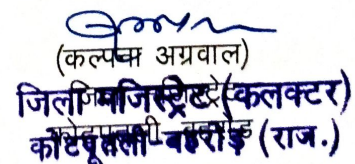 (कल्पना अग्रवाल)
जिला मजिस्ट्रेट (कलक्टर)
कोटपूतली-बहरोड़ (राज.)